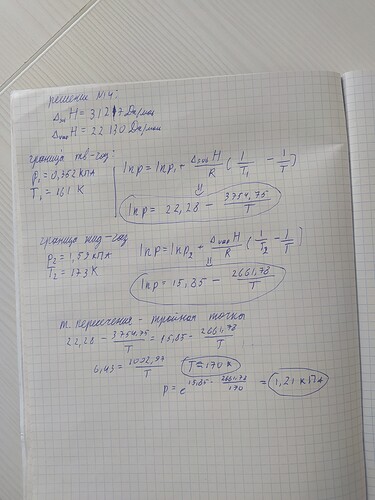 решение №14:
Δsub H = 31217 Дж/моль
Δvap H = 22130 Дж/моль
граница тв-газ:
p₁ = 0,362 кПА
T₁ = 161 K
ln p = ln p₁ + Δsub H / R (1/T₁ - 1/T)
ln p = 22,28 - 3754,75/T
граница жид-газ
p₂ = 1,58 кПА
T₂ = 173 K
ln p = ln p₂ + Δvap H / R (1/T₂ - 1/T)
ln p = 15,85 - 2661,78/T
т. пересечения - тройная точка
22,28 - 3754,75/T = 15,85 - 2661,78/T
6,43 = 1092,97/T
T = 170 K
p = e^(15,85 - 2661,78/170) = 1,21 кПА